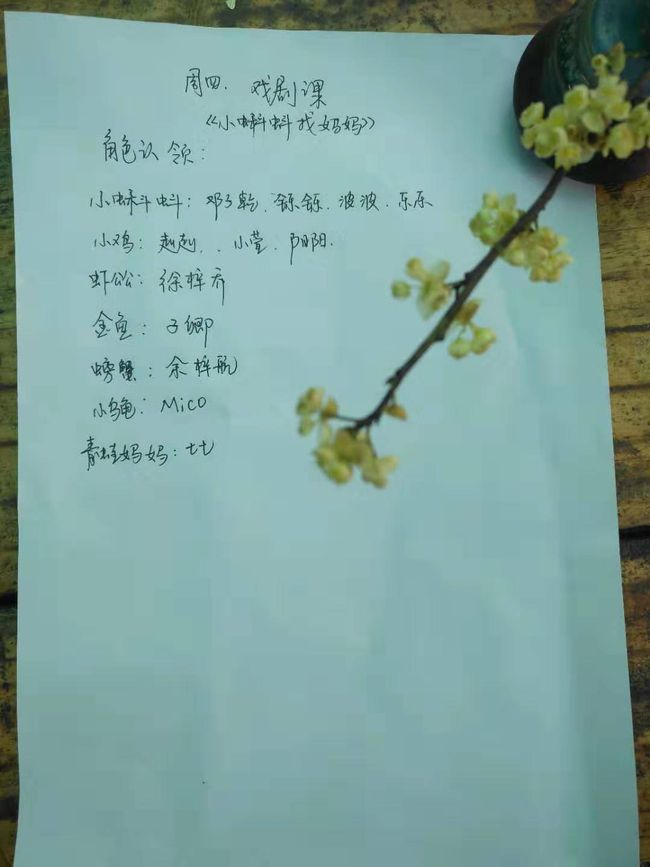 周四. 戏剧课
《小蝌蚪找妈妈》
角色认领：
小蝌蚪：邓子乾、铄铄、波波、乐乐
小鸡：赳赳、、小萱、阳阳.
虾公公：徐梓乔
金鱼：子卿
螃蟹：余梓航
小乌龟：Mico
青蛙妈妈：七七